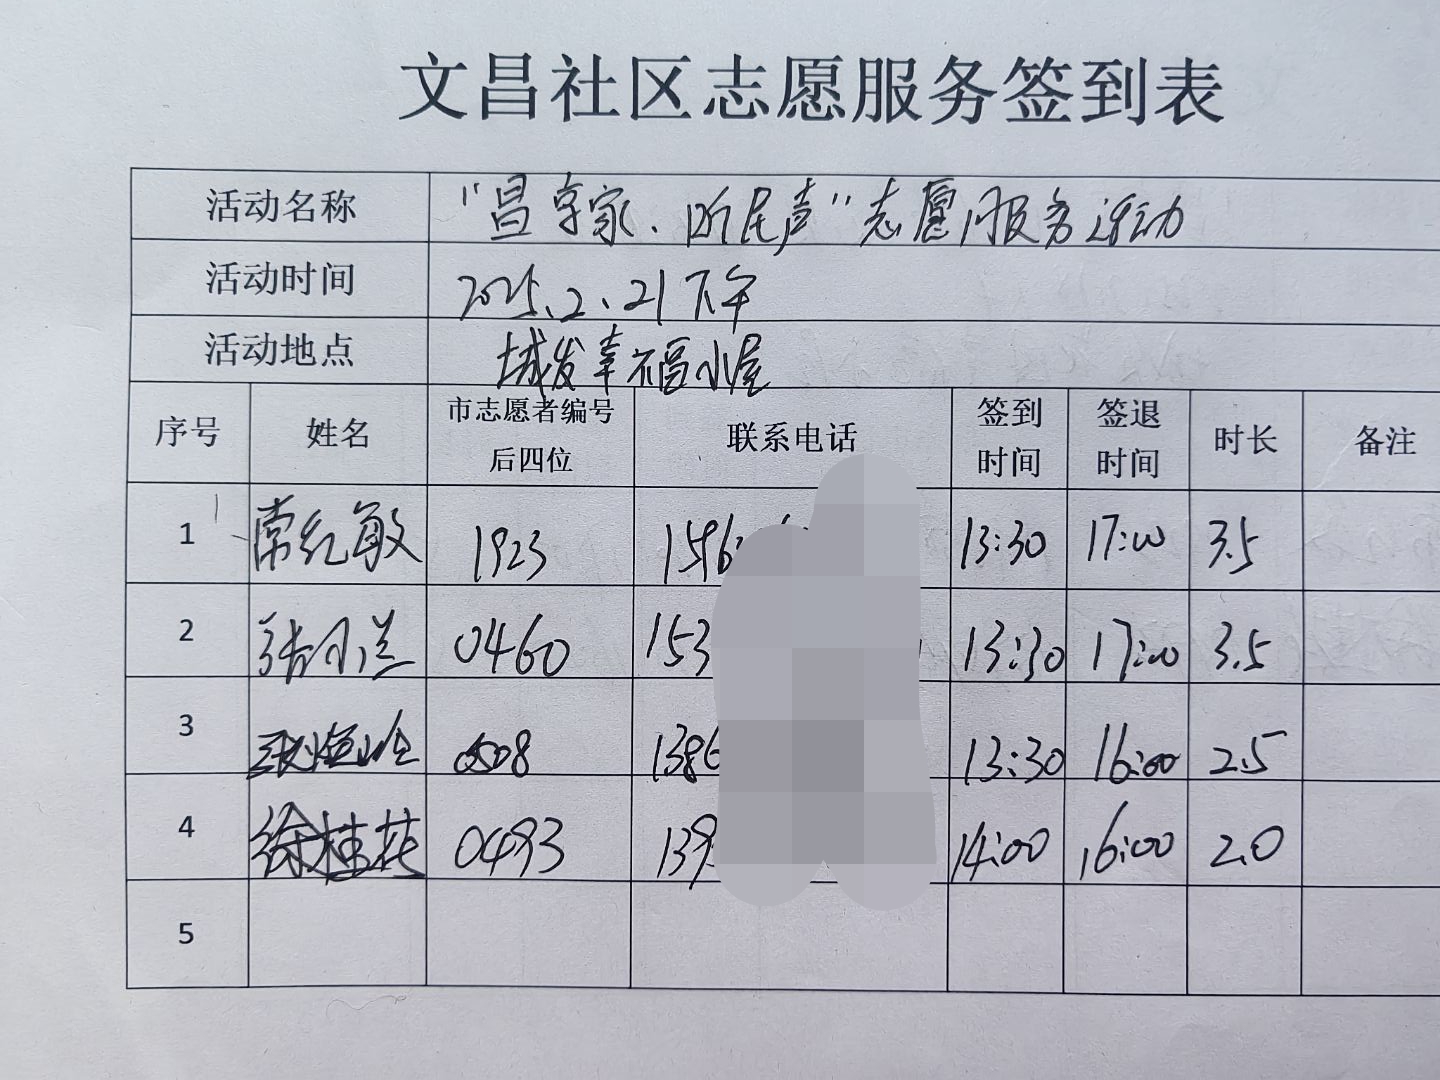 文昌社区志愿服务签到表
活动名称 "昌字家、听民声"志愿服务活动
活动时间 2025.2.21下午
活动地点 城发幸福小屋
序号 姓名 市志愿者编号后四位 联系电话 签到时间 签退时间 时长 备注
1 常红敏 1923 1596 13:30 17:00 3.5
2 张小兰 0460 153 13:30 17:00 3.5
3 0508 1386 13:30 16:00 2.5
4 徐桂花 0493 139 14:00 16:00 2.0
5